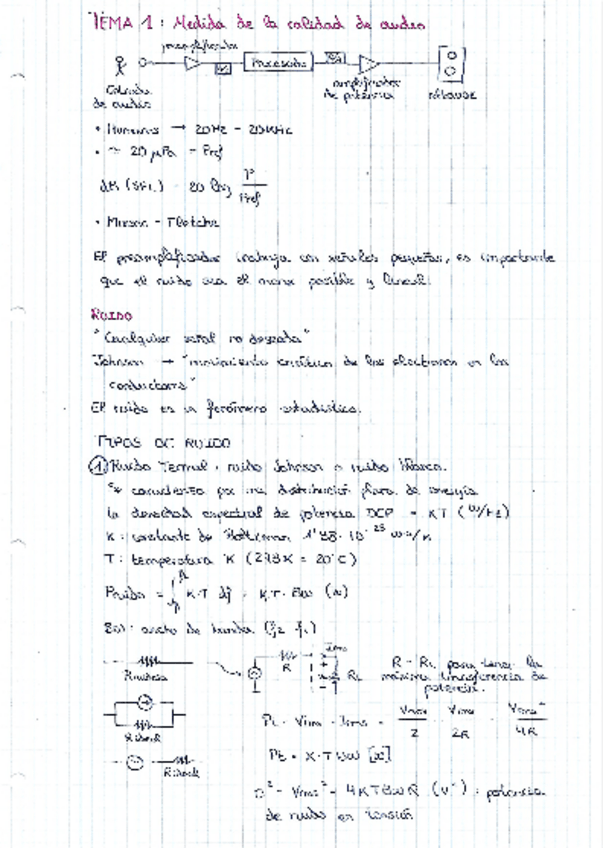 TEMA 1: Medida de la calidad de audio
preamplificador
Procesado
Entrada de audio
amplificador de potencia
altavoz
• Humanos → 20Hz - 20KHz
• ≈ 20 μPa - Pref
dB (SPL) = 20 log P/Pref
• Munson - Fletcher
El preamplificador trabaja con señales pequeñas, es importante
que el ruido sea el menor posible y lineal.
RUIDO
"Cualquier señal no deseada"
Johnson → "movimiento errático de los electrones en los
conductores"
El ruido es un fenómeno estadístico.
TIPOS DE RUIDO
① Ruido Termal, ruido Johnson o ruido blanco.
Se caracteriza por una distribución plana de energía
la densidad espectral de potencia DEP = KT (W/Hz)
K: constante de Boltzman 1'38·10⁻²³ W·s/K
T: temperatura K (293K = 20°C)
Pruido = ∫ K·T df = K·T·BW (W)
BW: ancho de banda (f2 - f1)
R
RL
R = RL para tener la
máxima transferencia de
potencia.
Rruidosa
Rideal
Rideal
PL = Vrms · Irms = Vrms/2 · Vrms/2R = Vrms²/4R
PL = K·T·BW [W]
σ² = Vrms² = 4KTBWR (V²): potencia
de ruido en tensión